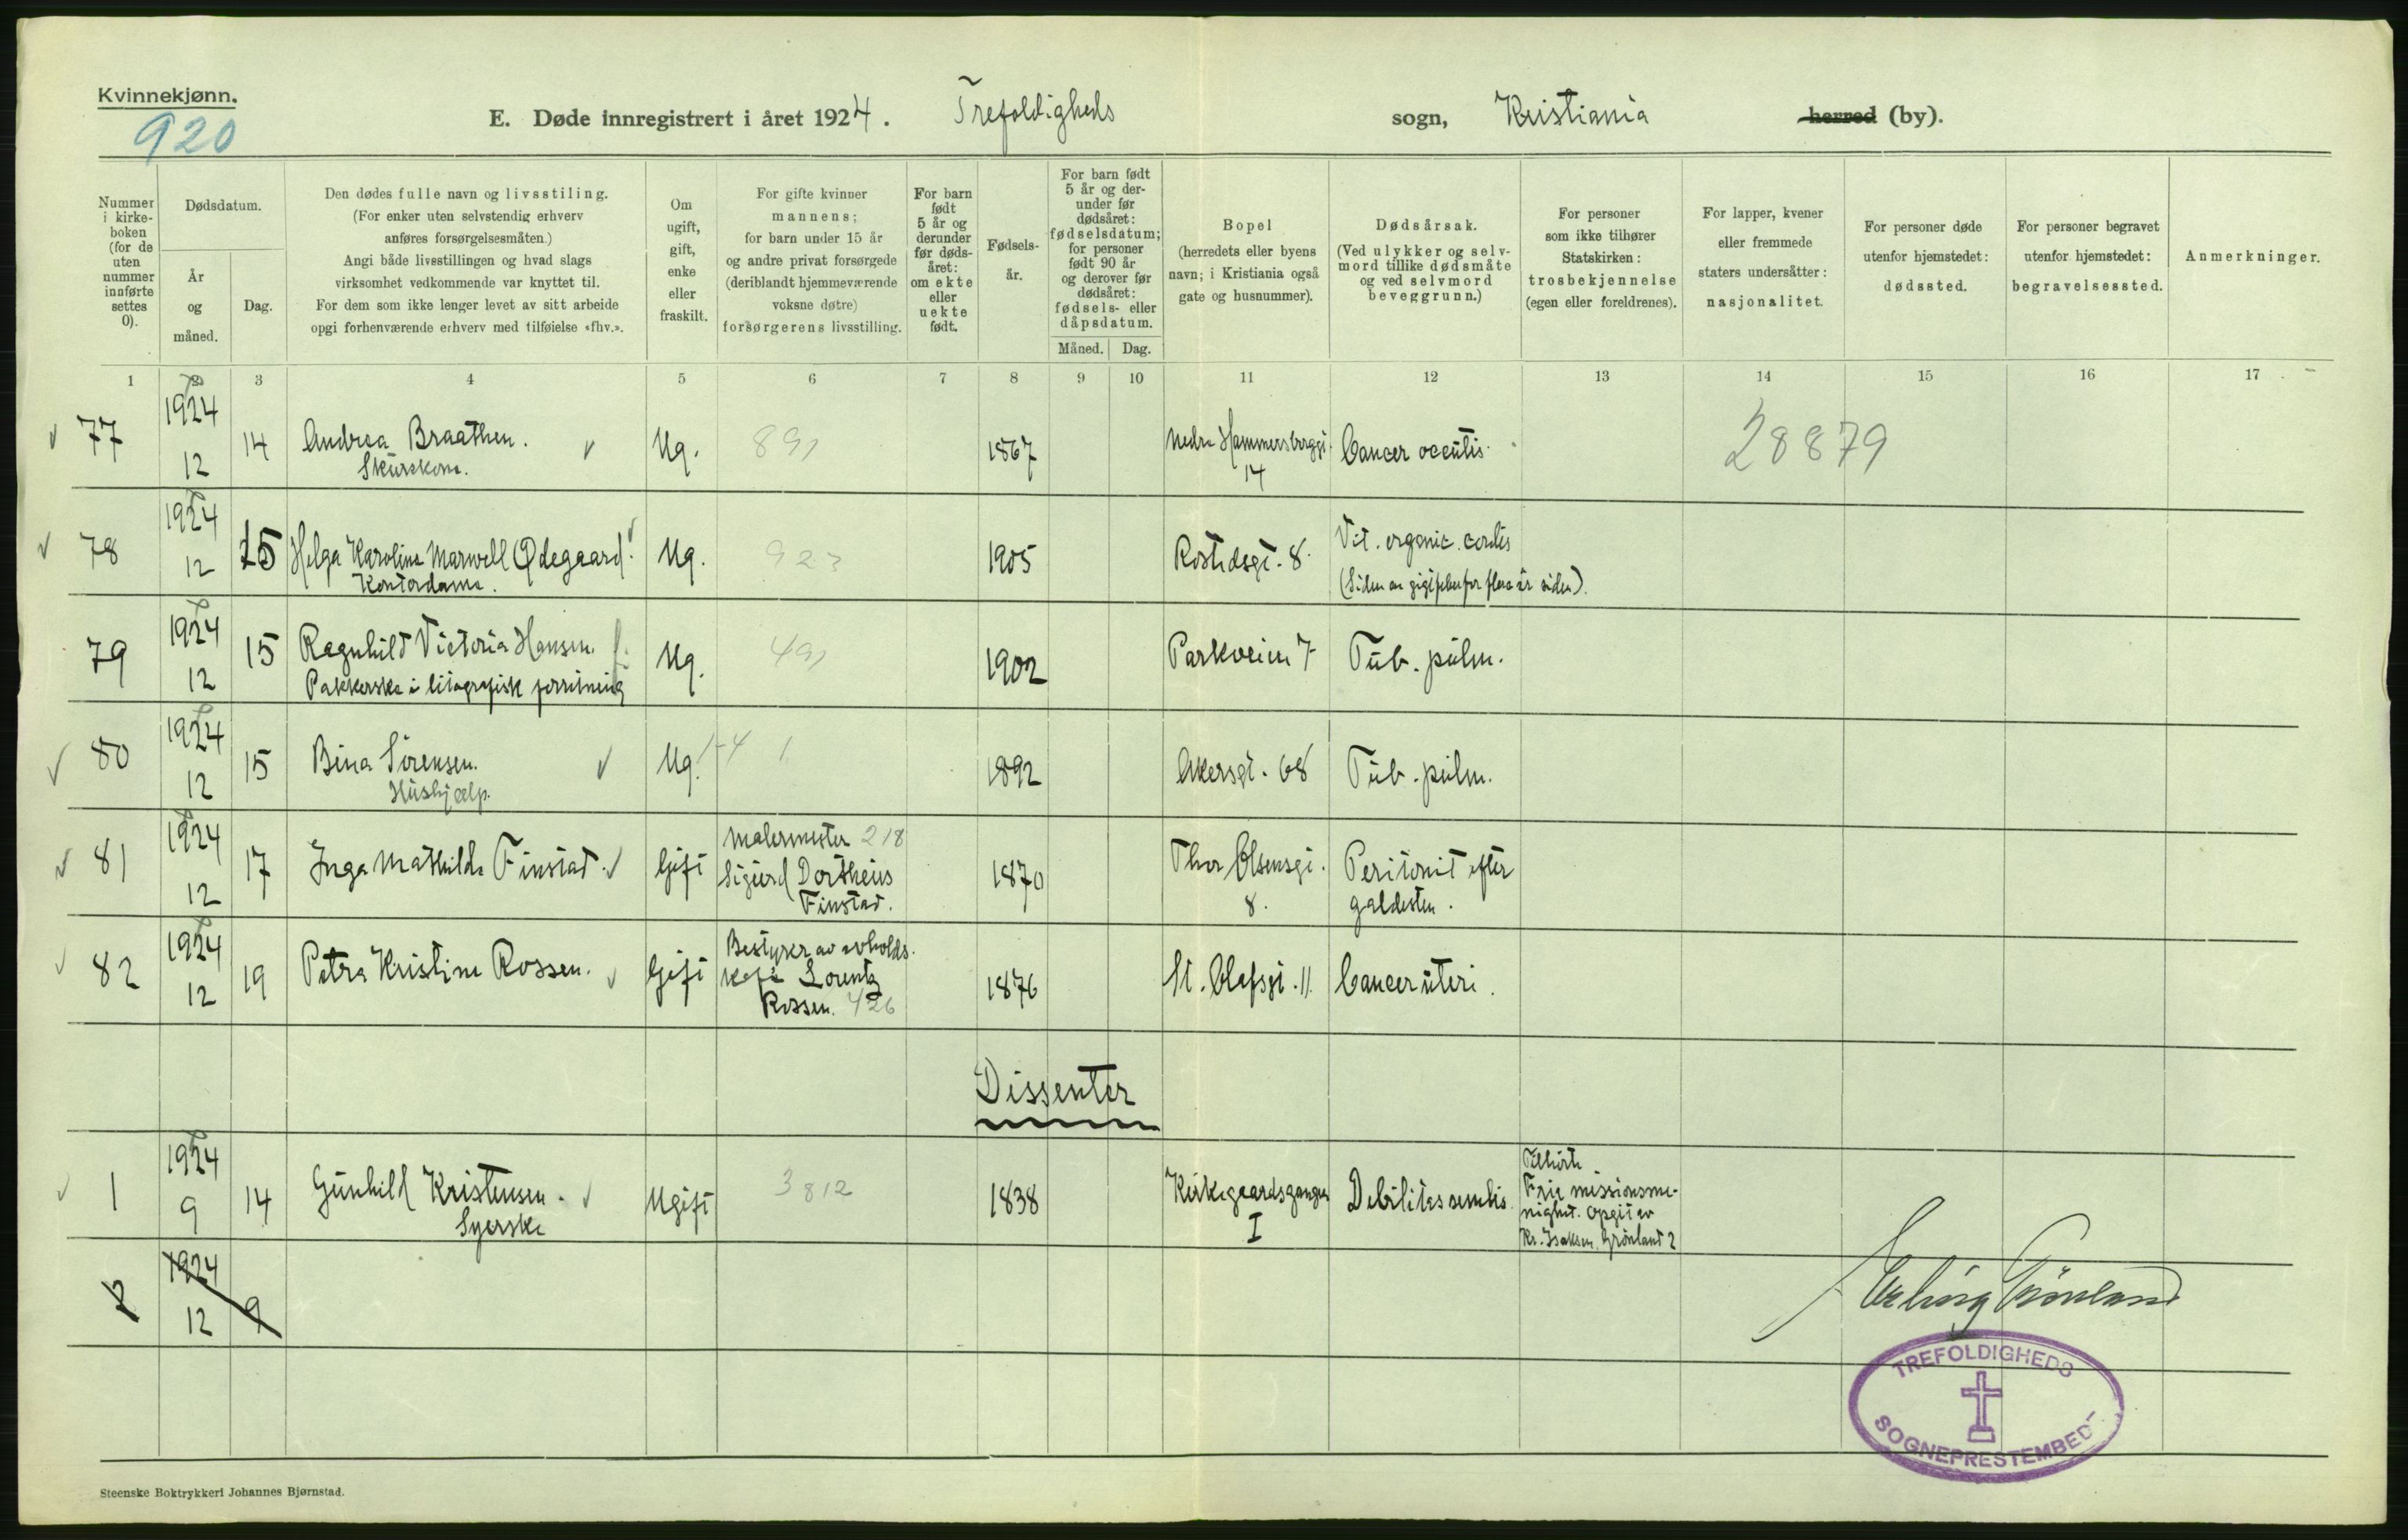 Kvinnekjønn.
920
E. Døde innregistrert i året 1924. Trefoldigheds sogn, Kristiania herred (by).
Nummer i kirke- boken (for de uten nummer innførte settes 0).
Dødsdatum.
År og måned.
Dag.
Den dødes fulle navn og livsstiling.
(For enker uten selvstendig erhverv
anføres forsørgelsesmåten.)
Angi både livsstillingen og hvad slags
virksomhet vedkommende var knyttet til.
For dem som ikke lenger levet av sitt arbeide
opgi forhenværende erhverv med tilføielse «fhv.».
Om
ugift,
gift,
enke
eller
fraskilt.
For gifte kvinner
mannens;
for barn under 15 år
og andre privat forsørgede
(deriblandt hjemmeværende
voksne døtre)
forsørgerens livsstilling.
For barn
født
5 år og
derunder
før døds-
året:
om ekte
eller
uekte
født.
Fødsels-
år.
For barn født
5 år og der-
under før
dødsåret:
fødselsdatum;
for personer
født 90 år
og derover før
dødsåret:
fødsels- eller
dåpsdatum.
Måned. Dag.
Bopel
(herredets eller byens
navn; i Kristiania også
gate og husnummer).
Dødsårsak.
(Ved ulykker og selv-
mord tillike dødsmåte
og ved selvmord
beveggrunn.)
For personer
som ikke tilhører
Statskirken:
trosbekjennelse
(egen eller foreldrenes).
For lapper, kvener
eller fremmede
staters undersåtter:
nasjonalitet.
For personer døde
utenfor hjemstedet:
dødssted.
For personer begravet
utenfor hjemstedet:
begravelsessted.
Anmerkninger.
1 2 3 4 5 6 7 8 9 10 11 12 13 14 15 16 17
77 1924 12 14 Andrea Braathen. Ug. 891 1867 Nedre Hammersborggt. 14 Cancer occutis. 28879
Skurekone.
78 1924 12 15 Helga Karoline Marwell Ødegaard. Ug. 923 1905 Rostedsgt. 8. Vit. organic. cordis
Kontordame. (Siden en gigtfeber for flere år siden).
79 1924 12 15 Ragnhild Victoria Hansen. Ug. 491 1902 Parkveien 7 Tub. pulm.
Pakkerske i litografisk forretning
80 1924 12 15 Bina Sørensen. Ug. 1892 Akersgt. 68 Tub. pulm.
Hushjælp.
81 1924 12 17 Inga Mathilde Finstad. Gift Malermester 218
Sigurd Dortheus
Finstad.
1870 Thor Olsensgt. 8. Peritonit efter
galdesten.
82 1924 12 19 Petra Kristine Rossen. Gift Bestyrer av avholds.
kafe Lorentz
Rossen. 426
1876 St. Olafsgt. 11. Cancer uteri.
Dissenter
1 1924 9 14 Gunhild Kristensen. Ugift 3812 1838 Kirkegaardsgangen I Debilitas senilis.
Syerske
Tilhørte
Frie missionsme-
nighet. Opgit av
Kr. Isaksen, Grønland 2
2 1924 12 9
Erling Grønland
TREFOLDIGHEDS
SOGNEPRESTEMBED
Steenske Boktrykkeri Johannes Bjørnstad.